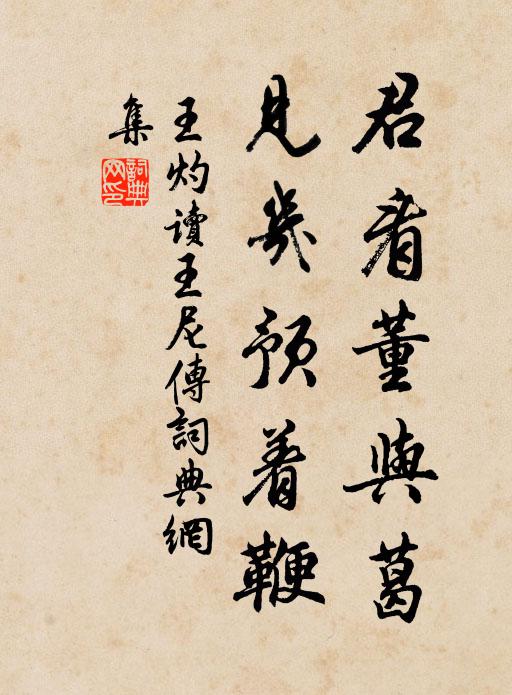 君看董與葛
見幾預着鞭
王灼讀王尼傳詞典網
集
詞典
网印